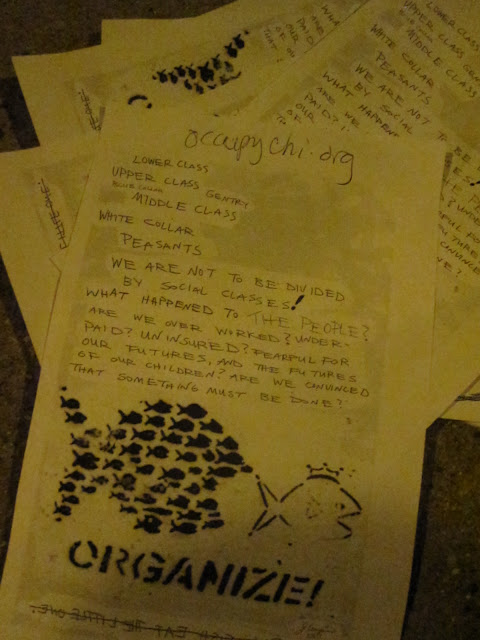 occupychi.org
LOWER CLASS
UPPER CLASS GENTRY
BLUE COLLAR
MIDDLE CLASS
WHITE COLLAR
PEASANTS
WE ARE NOT TO BE DIVIDED
BY SOCIAL CLASSES!
WHAT HAPPENED TO THE PEOPLE?
ARE WE OVER WORKED? UNDER-
PAID? UNINSURED? FEARFUL FOR
OUR FUTURES, AND THE FUTURES
OF OUR CHILDREN? ARE WE CONVINCED
THAT SOMETHING MUST BE DONE?
ORGANIZE!
EAT THE LITTLE ONE.
LOWER CLASS
UPPER CLASS GENTRY
MIDDLE CLASS
WHITE COLLAR
PEASANTS
WE ARE NOT TO BE
BY SOCIAL
WHAT HAPPEN
ARE WE
PAID?
OUR
OF